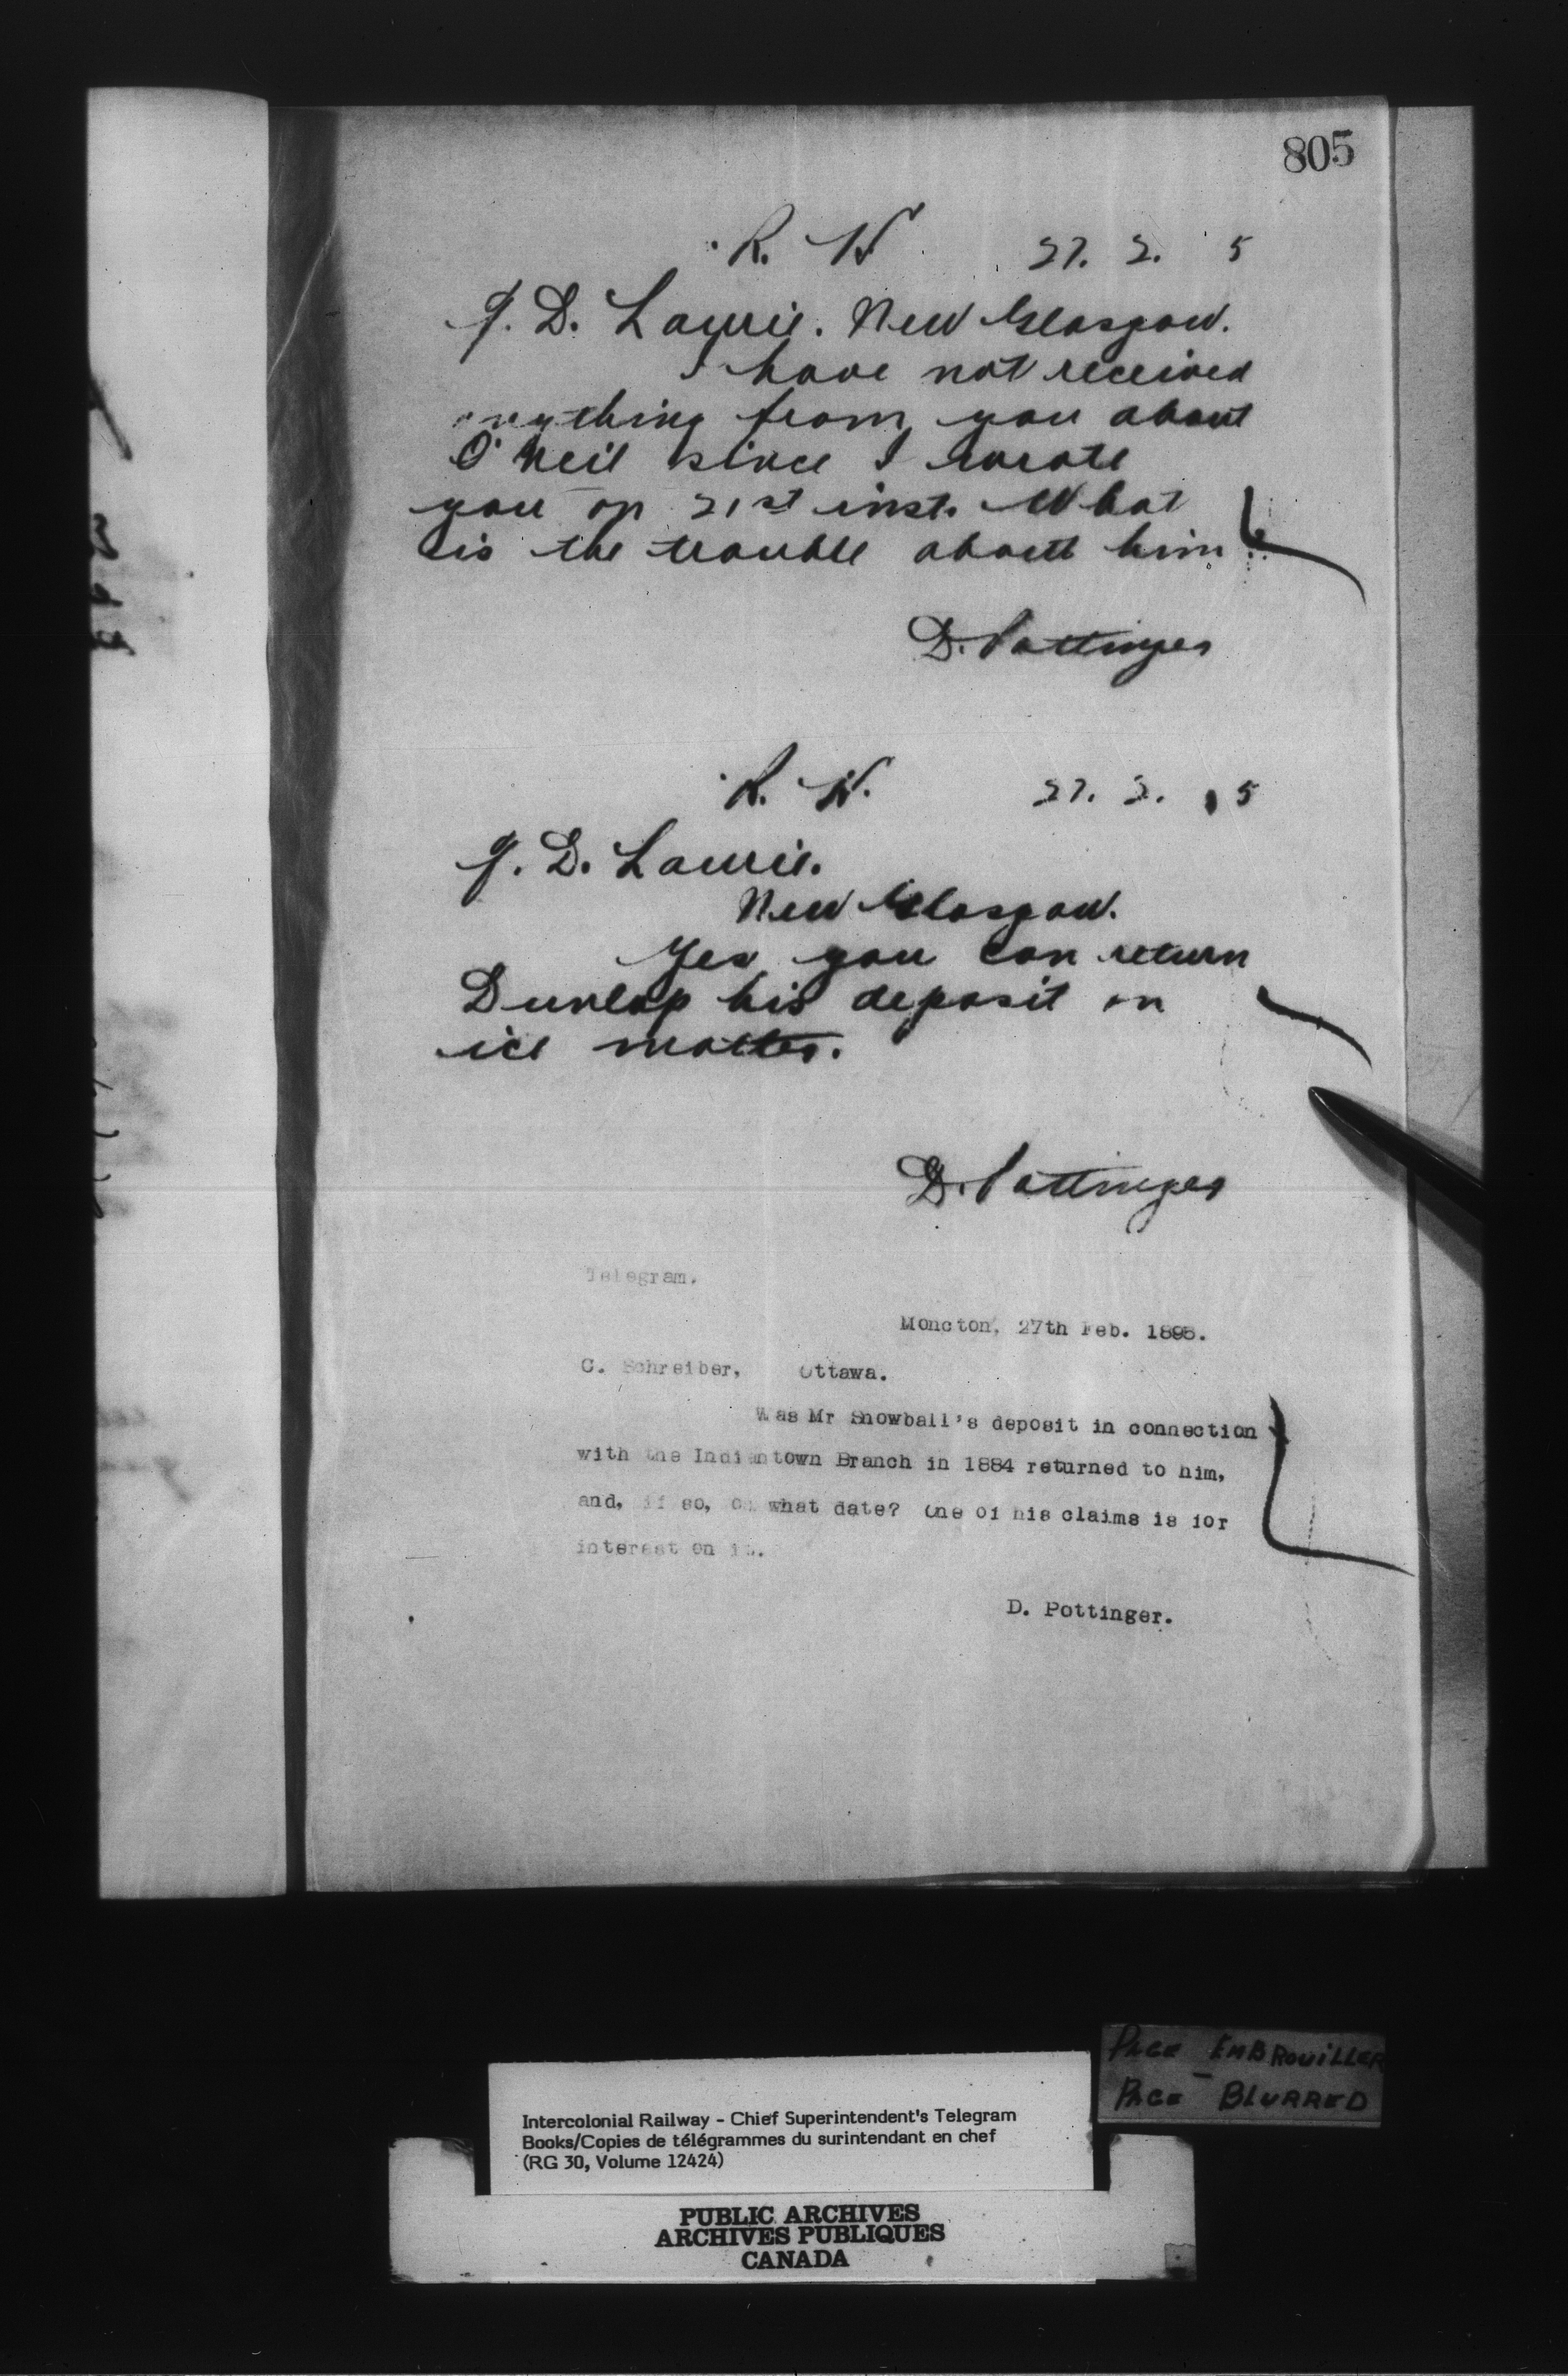 805
R. W. 27. 2. 5
J. D. Lawrie. New Glasgow.
I have not received
anything from you about
O'Neil since I wrote
you on 21st inst. What
is the trouble about him?
D. Pottinger
R. W. 27. 2. 5
J. D. Lawrie.
New Glasgow.
Yes you can return
Dunlap his deposit on
ice matter.
D. Pottinger
Telegram.
Moncton, 27th Feb. 1895.
C. Schreiber, Ottawa.
Was Mr Snowball's deposit in connection
with the Indiantown Branch in 1884 returned to him,
and, if so, on what date? One of his claims is for
interest on it.
D. Pottinger.
PAGE EMBROUILLER
PAGE BLURRED
Intercolonial Railway - Chief Superintendent's Telegram
Books/Copies de télégrammes du surintendant en chef
(RG 30, Volume 12424)
PUBLIC ARCHIVES
ARCHIVES PUBLIQUES
CANADA